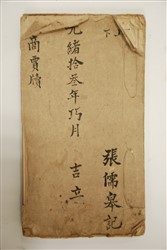 下
張儒皋記
光緒拾叁年巧月 吉立
商賈牘